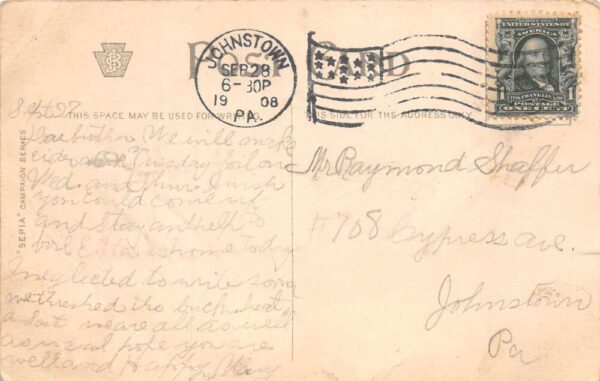 POST CARD
JOHNSTOWN
SEP 28
6-30P
1908
PA.
SERIES 1902
UNITED STATES OF AMERICA
FRANKLIN
1 POSTAGE 1
ONE CENT
THIS SPACE MAY BE USED FOR
THIS SIDE FOR THE ADDRESS ONLY
"SEPIA" CAMPAIGN SERIES
Sept 27
We will make
cider Tuesday boil on
Wed. and Thur. I wish
you could come up
and stay and help
boil is home today
I neglected to write soon
we threshed the buckwheat
we are all as well
as usual hope you are
well and Happy Mary
Mr Raymond Shaffer
#708 Cypress ave.
Johnstown
Pa